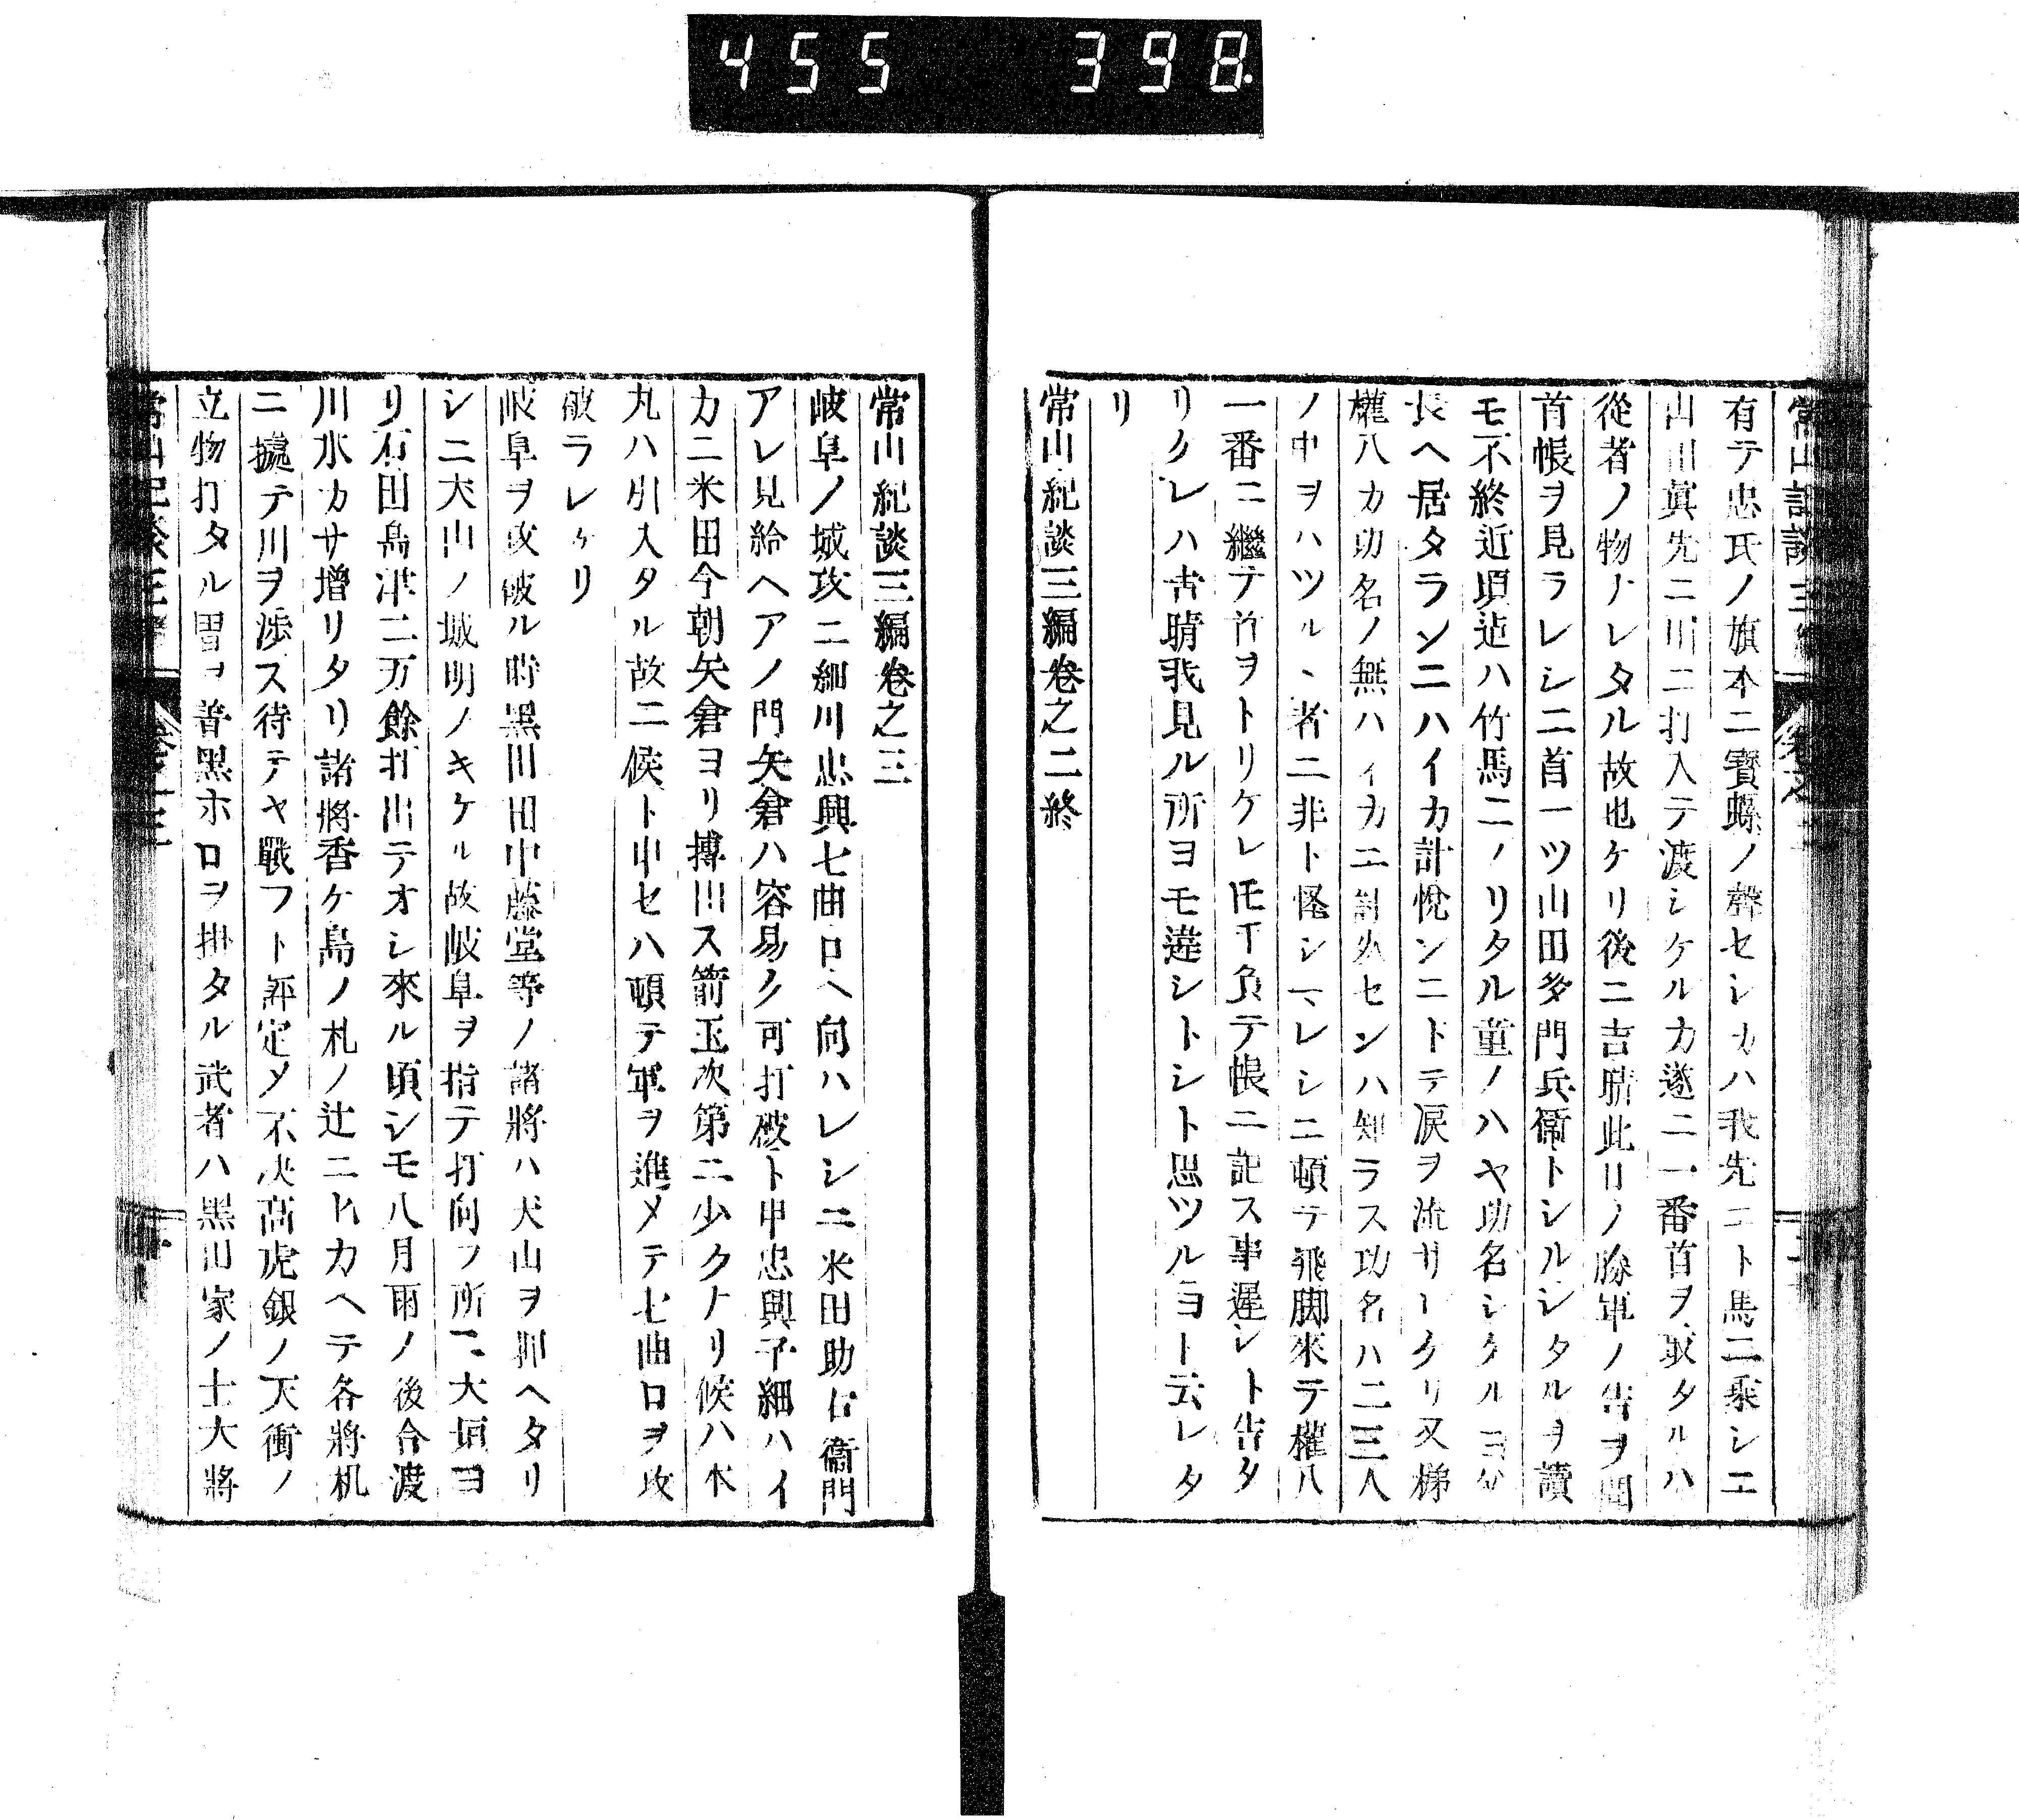 455 398
有テ忠氏ノ旗本ニ寳螺ノ聲セシカハ我先ニト馬ニ乘シニ
山田眞先ニ川ニ打入テ渡シケルカ遂ニ一番首ヲ取タルハ
從者ノ物ナレタル故也ケリ後ニ吉晴此日ノ勝軍ノ告ヲ聞
首帳ヲ見ラレシニ首一ツ山田多門兵衞トシルシタルヲ讀
モ不終近頃迠ハ竹馬ニノリタル童ノハヤ功名シタルヨ父
長ヘ居タランニハイカ計悅ンニトテ涙ヲ流サレタリ又梯
權八カ功名ノ無ハイカニ討死センハ知ラス功名ハ二三人
ノ中ヲハツルヽ者ニ非ト怪シマレシニ頓テ飛脚來テ權八
一番ニ繼テ首ヲトリケレ𪜈手負テ帳ニ記ス事遲シト告タ
リケレハ吉晴我見ル所ヨモ違シトシト思ツルヨト云レタ
リ
常山紀談三編卷之二終
常山紀談三編卷之三
岐阜ノ城攻ニ細川忠興七曲口ヘ向ハレシニ米田助右衞門
アレ見給ヘアノ門矢倉ハ容易ク可打破ト申忠興子細ハイ
カニ米田今朝矢倉ヨリ搏出ス箭玉次第ニ少クナリ候ハ本
丸ハ引入タル故ニ候ト申セハ頓テ軍ヲ進メテ七曲口ヲ攻
破ラレケリ
岐阜ヲ攻破ル時黑田田中藤堂等ノ諸將ハ犬山ヲ押ヘタリ
シニ犬山ノ城明ノキケル故岐阜ヲ指テ打向フ所ニ大垣ヨ
リ石田島津二万餘打出テオシ來ル頃シモ八月雨ノ後合渡
川水カサ增リタリ諸將香ケ島ノ札ノ辻ニヒカヘテ各將机
ニ據テ川ヲ渉ス待テヤ戰フト評定メ不决高虎銀ノ天衝ノ
立物打タル冑ヲ着黑ホロヲ掛タル武者ハ黑田家ノ士大將